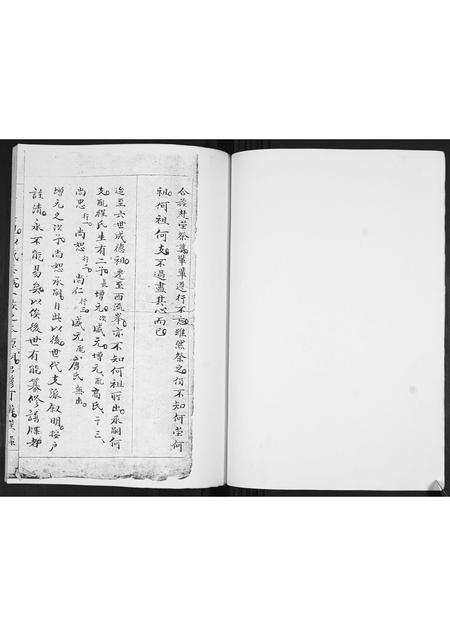 合族赴茔祭奠輩輩遵行不忘雖然祭之何不知何茔何
祖何祖何支不過盡其心而已
迨至六世成德祖遷至西流峯亦不知何祖所出承嗣何
支配程氏生有二子長增元次咸元增元配高氏子三
尚思行一尚恕行二尚仁行三咸元配詹氏無出
增元之次子尚恕承嗣自此以後世代支派叙明按户
註清永不能易矣以俟後世有能纂修譜牒者